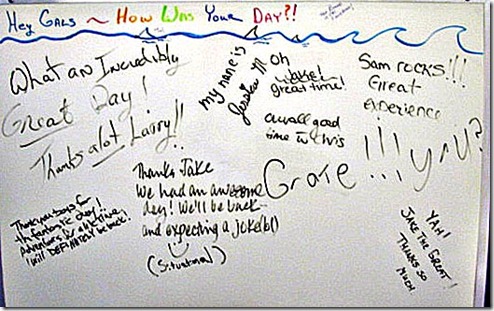 Hey Gals ~ How Was Your Day?!
What an Incredibly
Great Day!
Thanks alot Larry!!
my name is
Jessica M
Oh
Jake!
great time!
a wall good
time w/ Chris
Sam rocks!!!
Great
experience
Grate!!! y r u?
Thanks Jake
We had an awesome
day! We'll be back
and expecting a joke(b()
(Situational)
Thank you boys for
the fantastic day!
I will DEFINITELY be back!
YAH!
JAKE THE GREAT!
THANKS SO
MUCH